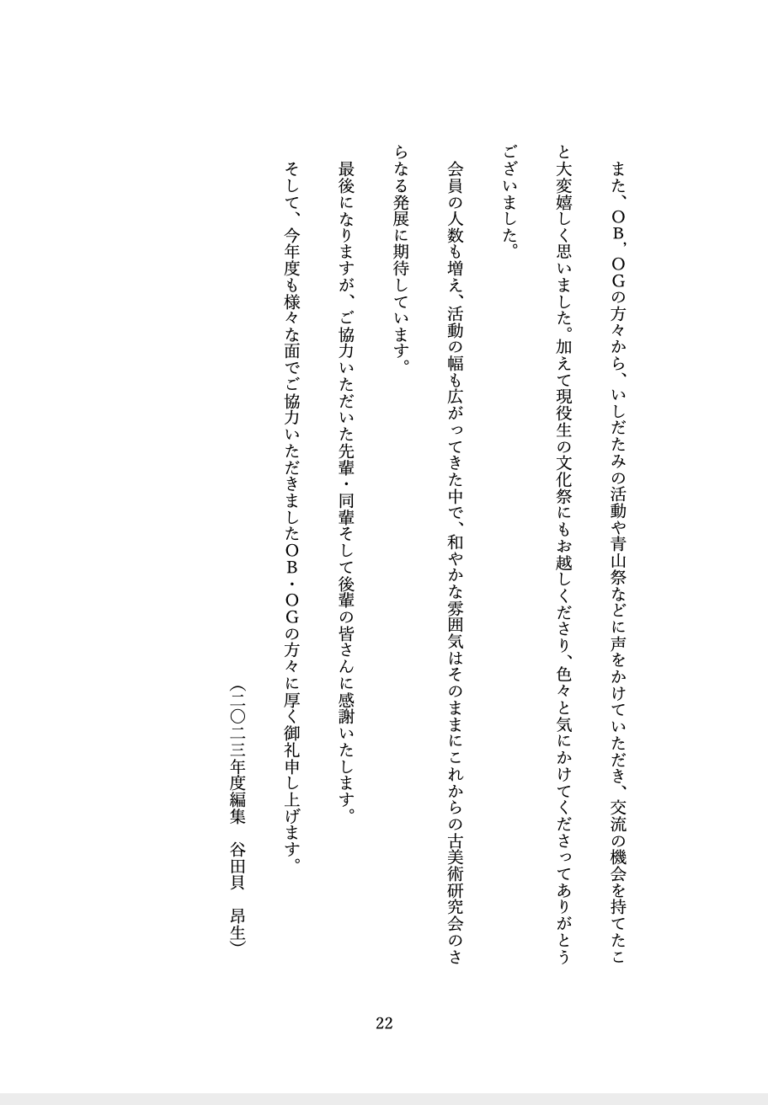 また、ＯＢ，ＯＧの方々から、いしだたみの活動や青山祭などに声をかけていただき、交流の機会を持てたこ
と大変嬉しく思いました。加えて現役生の文化祭にもお越しくださり、色々と気にかけてくださってありがとう
ございました。
会員の人数も増え、活動の幅も広がってきた中で、和やかな雰囲気はそのままにこれからの古美術研究会のさ
らなる発展に期待しています。
最後になりますが、ご協力いただいた先輩・同輩そして後輩の皆さんに感謝いたします。
そして、今年度も様々な面でご協力いただきましたＯＢ・ＯＧの方々に厚く御礼申し上げます。
（二〇二三年度編集　谷田貝　昂生）
22